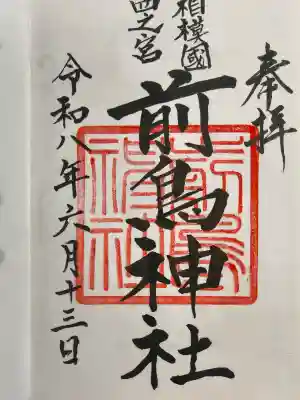 奉拝
相模國
四之宮
前鳥神社
令和八年六月十三日
前鳥
神社